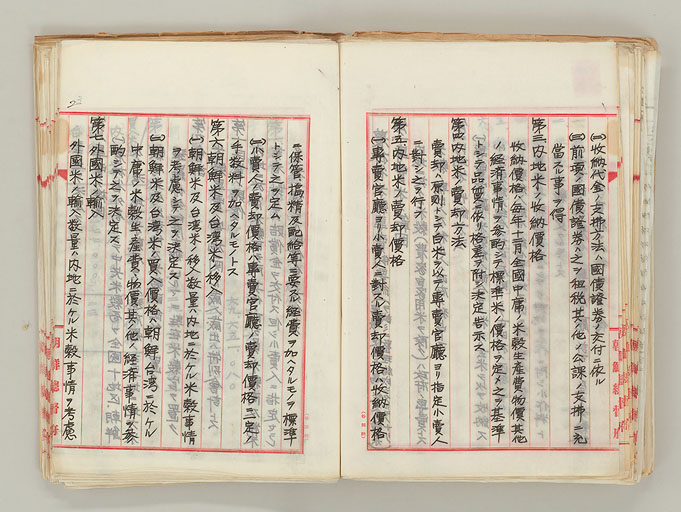 (二)收納代金ノ支拂方法ハ國債證券ノ交付ニ依ル
(三)前項ノ國債證券ハ之ヲ租税其ノ他ノ公課ノ支拂ニ充
當スル事ヲ得
第三、内地米ノ收納價格
收納價格ハ毎年十一月全國中庸ノ米穀生産費、物價其他
ノ經濟事情ヲ參酌シテ標準米ノ價格ヲ定メ之ヲ基準
トシテ品質ニ依リ格差ヲ附シ決定告示ス
第四、内地米ノ賣却方法
賣却ハ原則トシテ白米ヲ以テ專賣官廳ヨリ指定小賣人
ニ對シ之ヲ行フ
第五、内地米ノ賣却價格
(一)專賣官廳ヨリ小賣人ニ對スル賣却價格ハ收納價格
ニ保管、搗精及配給等ニ要スル經費ヲ加ヘタルモノヲ標準
トシテ之ヲ定ム
(二)小賣人ノ賣却價格ハ專賣官廳ノ賣却價格ニ一定ノ
手數料ヲ加ヘタルモノトス
第六、朝鮮米及台湾米ノ移入
(一)朝鮮米及台湾米ノ移入數量ハ内地ニ於ケル米穀事情
ヲ考慮シテ之ヲ決定ス
(二)朝鮮米及台湾米ノ買入價格ハ朝鮮台湾ニ於ケル
中庸ノ米穀生産費、物價其ノ他ノ經濟事情ヲ參
酌シテ之ヲ決定ス
第七、外國米ノ輸入
外國米ノ輸入數量ハ内地ニ於ケル米穀事情ヲ考慮
朝鮮總督府